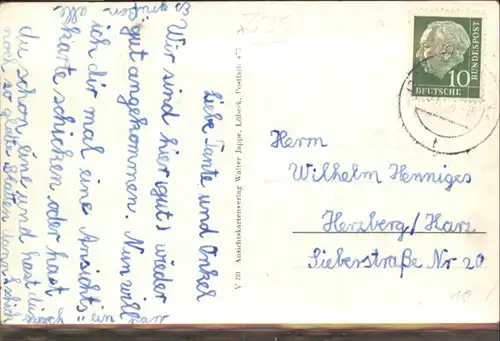 Liebe Tante und Onkel
Wir sind hier (gut) wieder
gut angekommen. Nun will
ich dir mal eine Ansichts=
karte schicken oder hast
du schon eine und hast du
noch so gute Karten
Es grüßen alle
V 780 Ansichtskartenverlag Walter Jappe, Lübeck, Postfach 475
DEUTSCHE
BUNDESPOST
10
Herrn
Wilhelm Henniges
Herzberg/Harz
Sieberstraße Nr 20
10